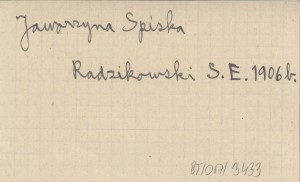 Jaworzyna Spiska
Radzikowski S. E. 1906 b.
3433